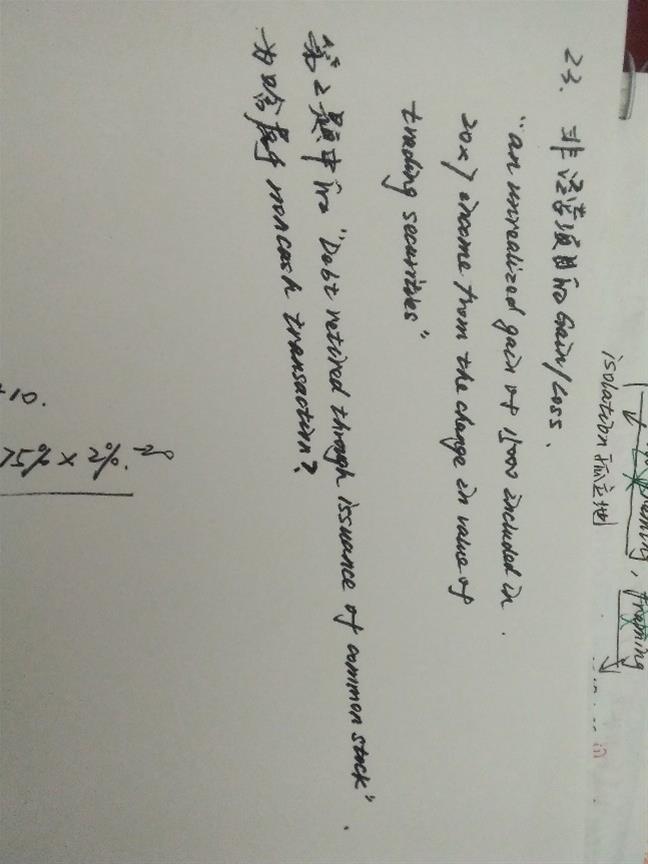 23. 非经营项目的Gain/Loss.
"an unrealized gain of 15000 included in
20x7 income from the change in value of
trading securities"
第2题中的 "Debt retired through issuance of common stock".
为啥属于 noncash transaction?
isolation 孤立地
framing
10.
75% × 2%.